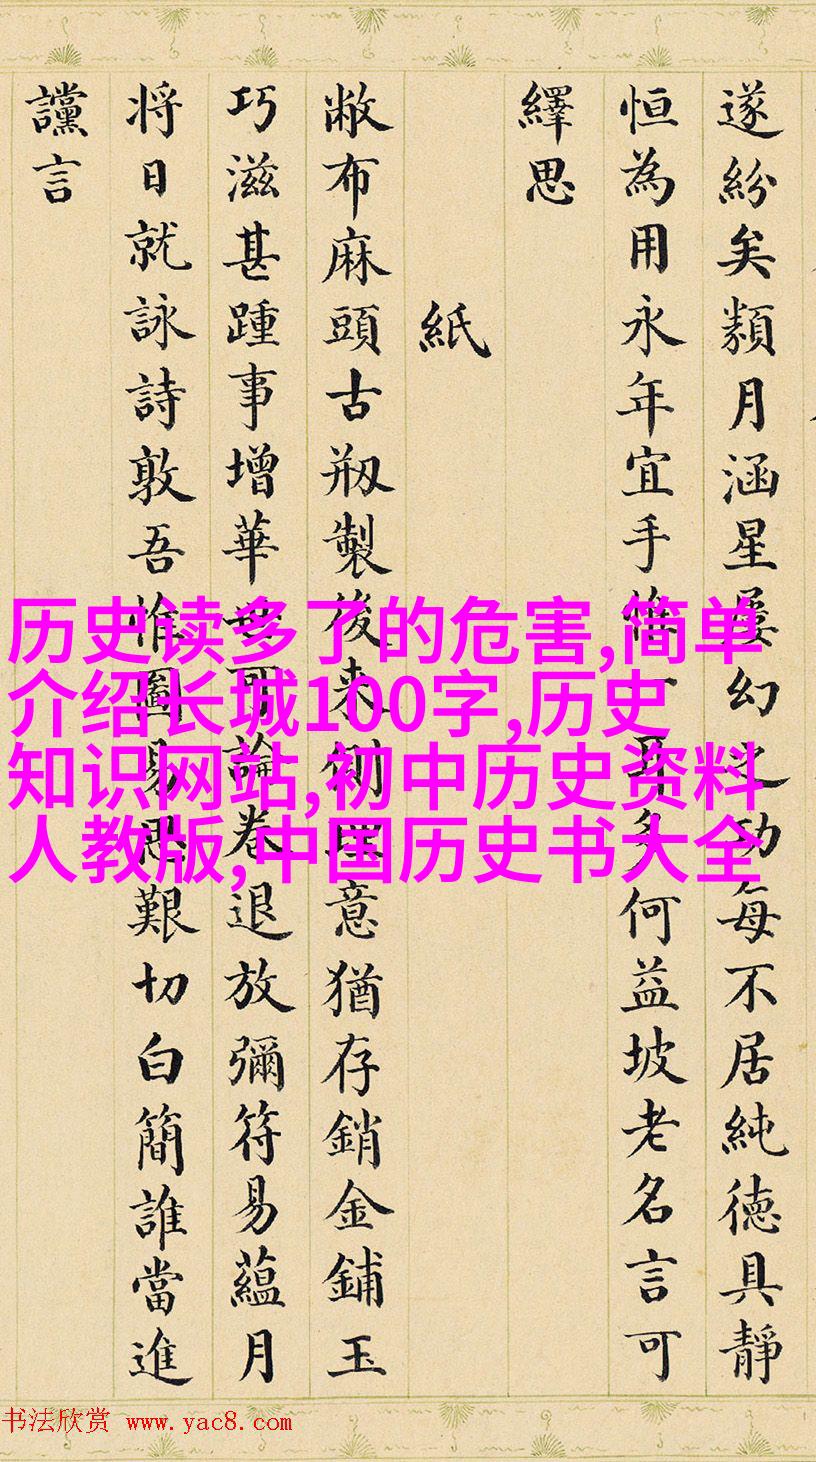 遂紛矣類月涵星屢幻之功每不居純德具靜
恒為用永年宜手
多何益坡老名言可
繹思
紙
敝布麻頭古剏製後来側理意猶存銷金鋪玉
巧滋甚踵事增華
可論卷退放彌符易蘊月
将日就詠詩敦吾惟圖易思艱切白簡誰當進
讜言
历史读多了的危害,简单
介绍长城100字,历史
知识网站,初中历史资料
人教版,中国历史书大全
书法欣赏 www.yac8.com